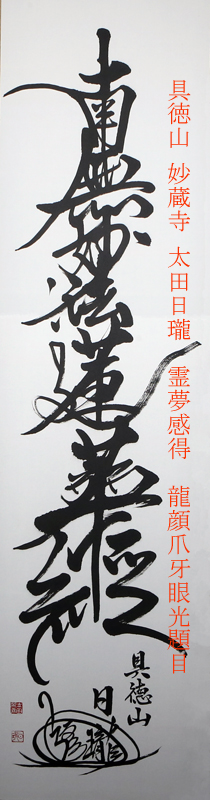 具徳山　妙蔵寺　太田日瓏　霊夢感得　龍顔爪牙眼光題目
南無妙法蓮華経
具徳山
日瓏